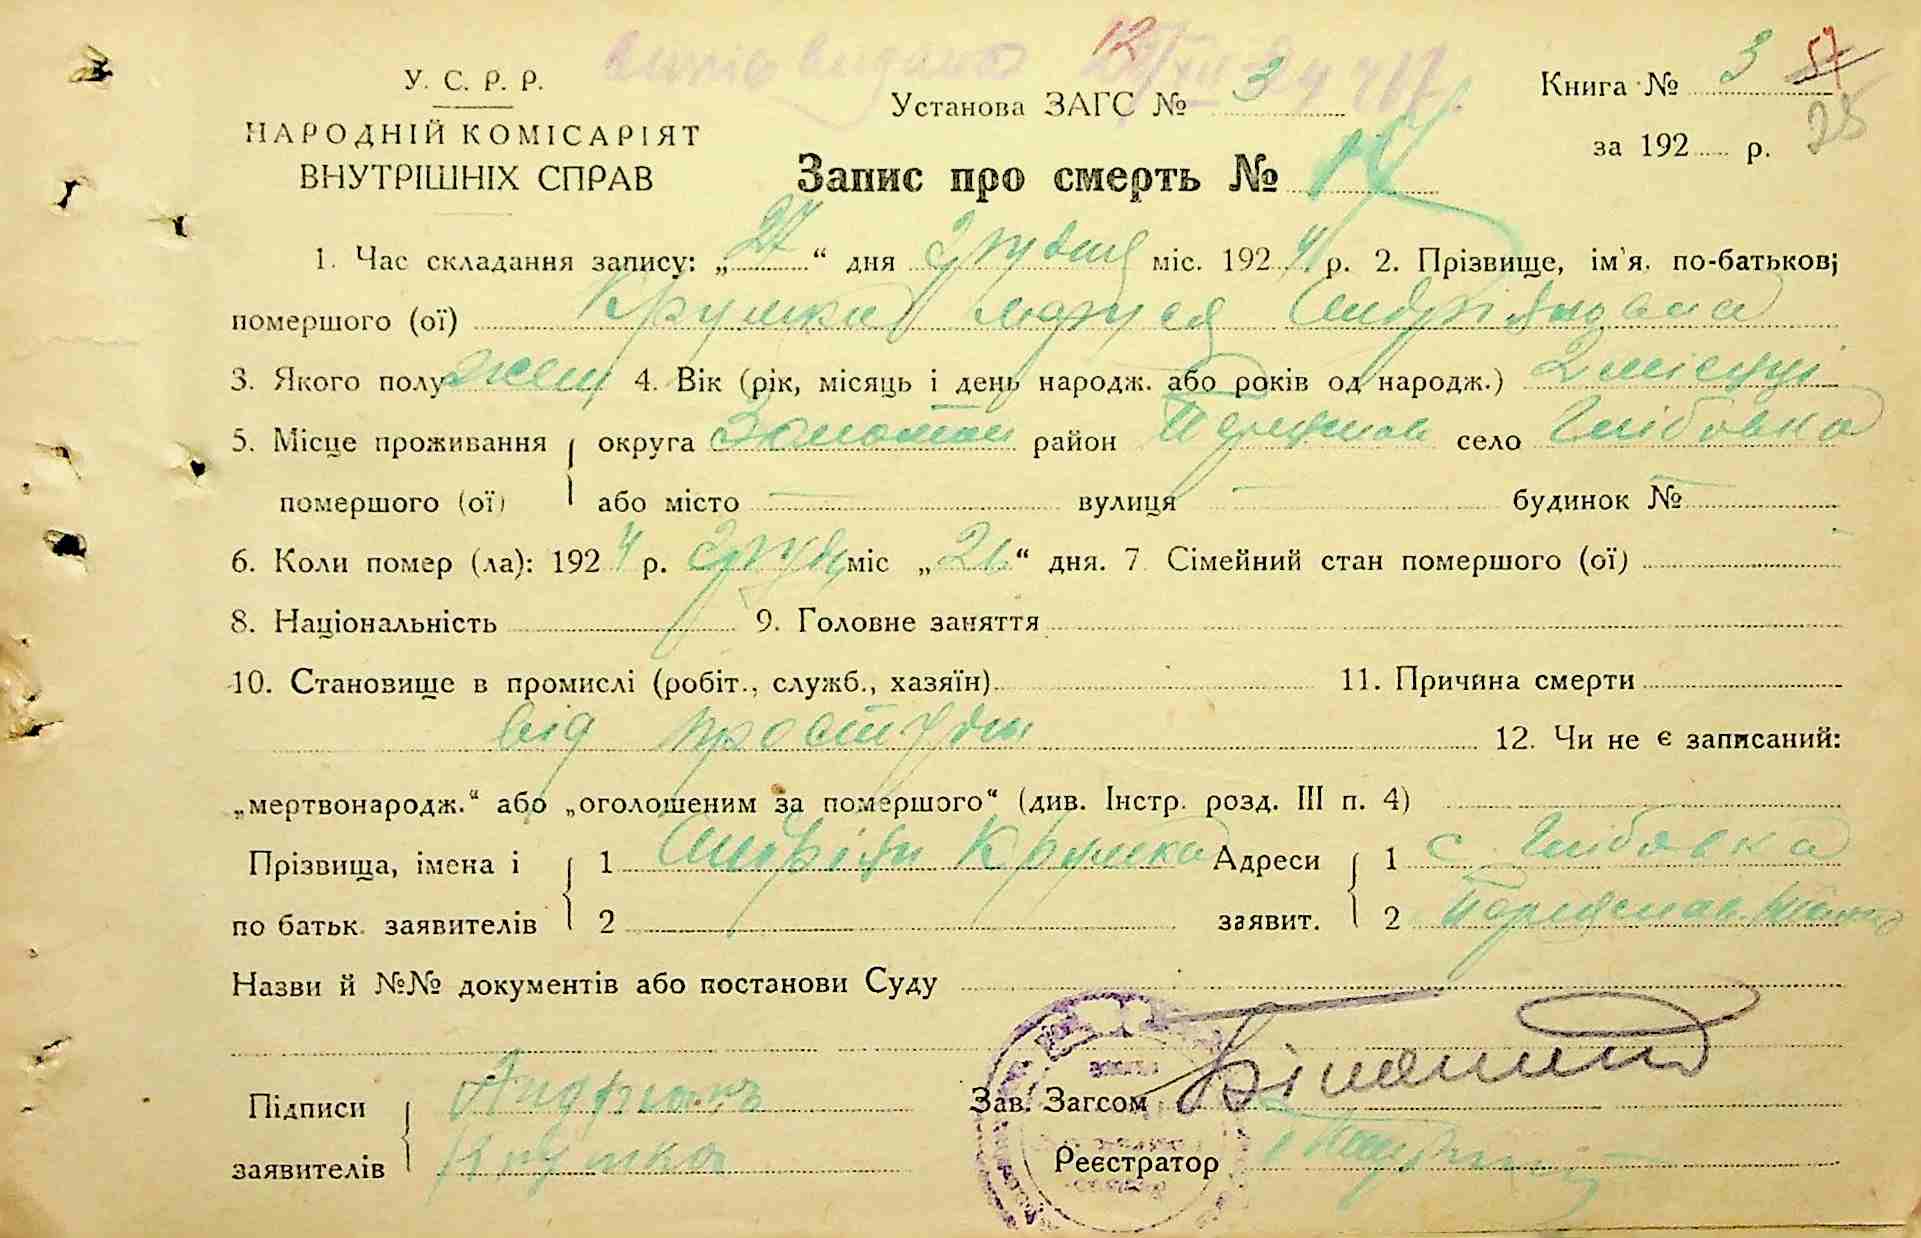 У. С. Р. Р.
НАРОДНІЙ КОМІСАРІЯТ
ВНУТРІШНІХ СПРАВ
Установа ЗАГС № 3
Книга № 3 57
28
за 192 р.
Запис про смерть №
1. Час складання запису: „27“ дня грудня міс. 1924 р. 2. Прізвище, ім'я. по-батькові
помершого (ої) Крупка Маруся Андріяновна
3. Якого полу жен 4. Вік (рік, місяць і день народж. або років од народж.) 2 місяці
5. Місце проживання округа Золотон район Переяслав село Глібовка
помершого (ої) або місто — вулиця — будинок № —
6. Коли помер (ла): 1924 р. грудн міс „26“ дня. 7. Сімейний стан помершого (ої) -
8. Національність 9. Головне заняття
10. Становище в промислі (робіт., служб., хазяїн) 11. Причина смерти
від простуди 12. Чи не є записаний:
„мертвонародж.“ або „оголошеним за помершого“ (див. Інстр. розд. III п. 4)
Прізвища, імена і 1 Андріян Крупка Адреси 1 с. Глібовка
по батьк. заявителів 2 заявит. 2 Переяслав.
Назви й №№ документів або постанови Суду
Підписи Зав. Загсом
заявителів Крупка Реєстратор